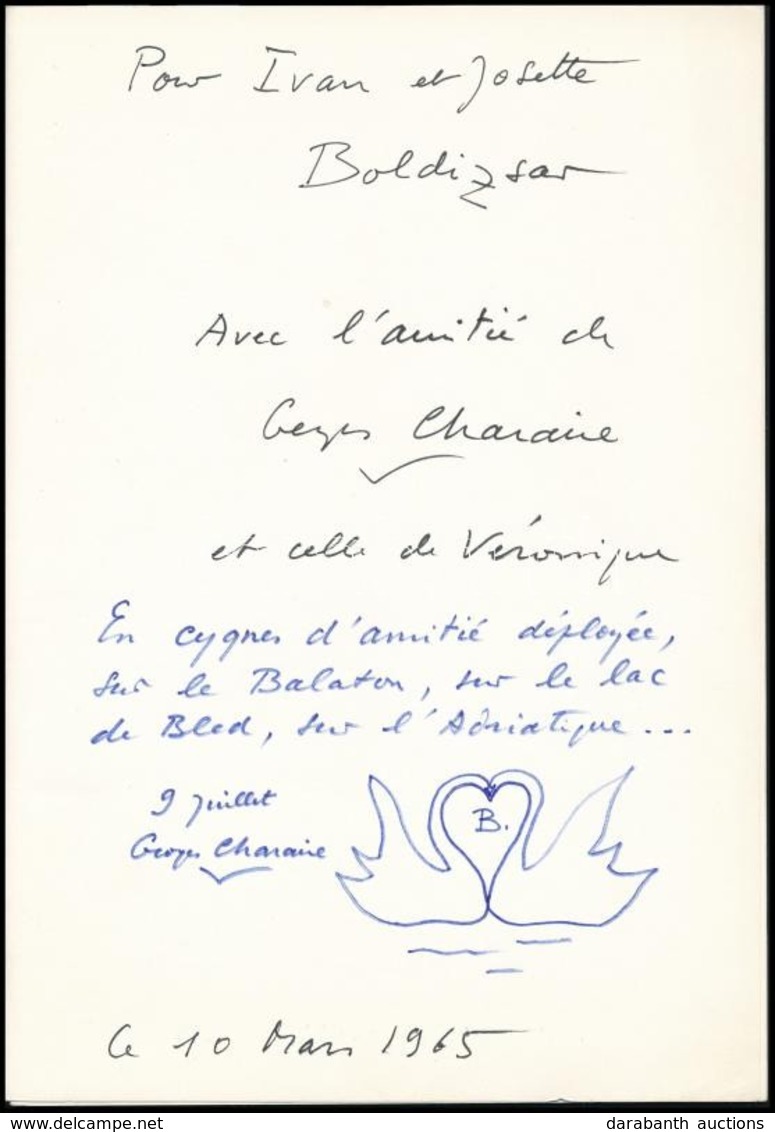 Pour Ivan et Josette
Boldizsar
Avec l'amitié de
Georges Charaire
et celle de Véronique
En cygnes d'amitié déployée,
sur le Balaton, sur le lac
de Bled, sur l'Adriatique...
9 juillet
Georges Charaire
B.
Le 10 Mars 1965
www.delcampe.net
darabanth auctions